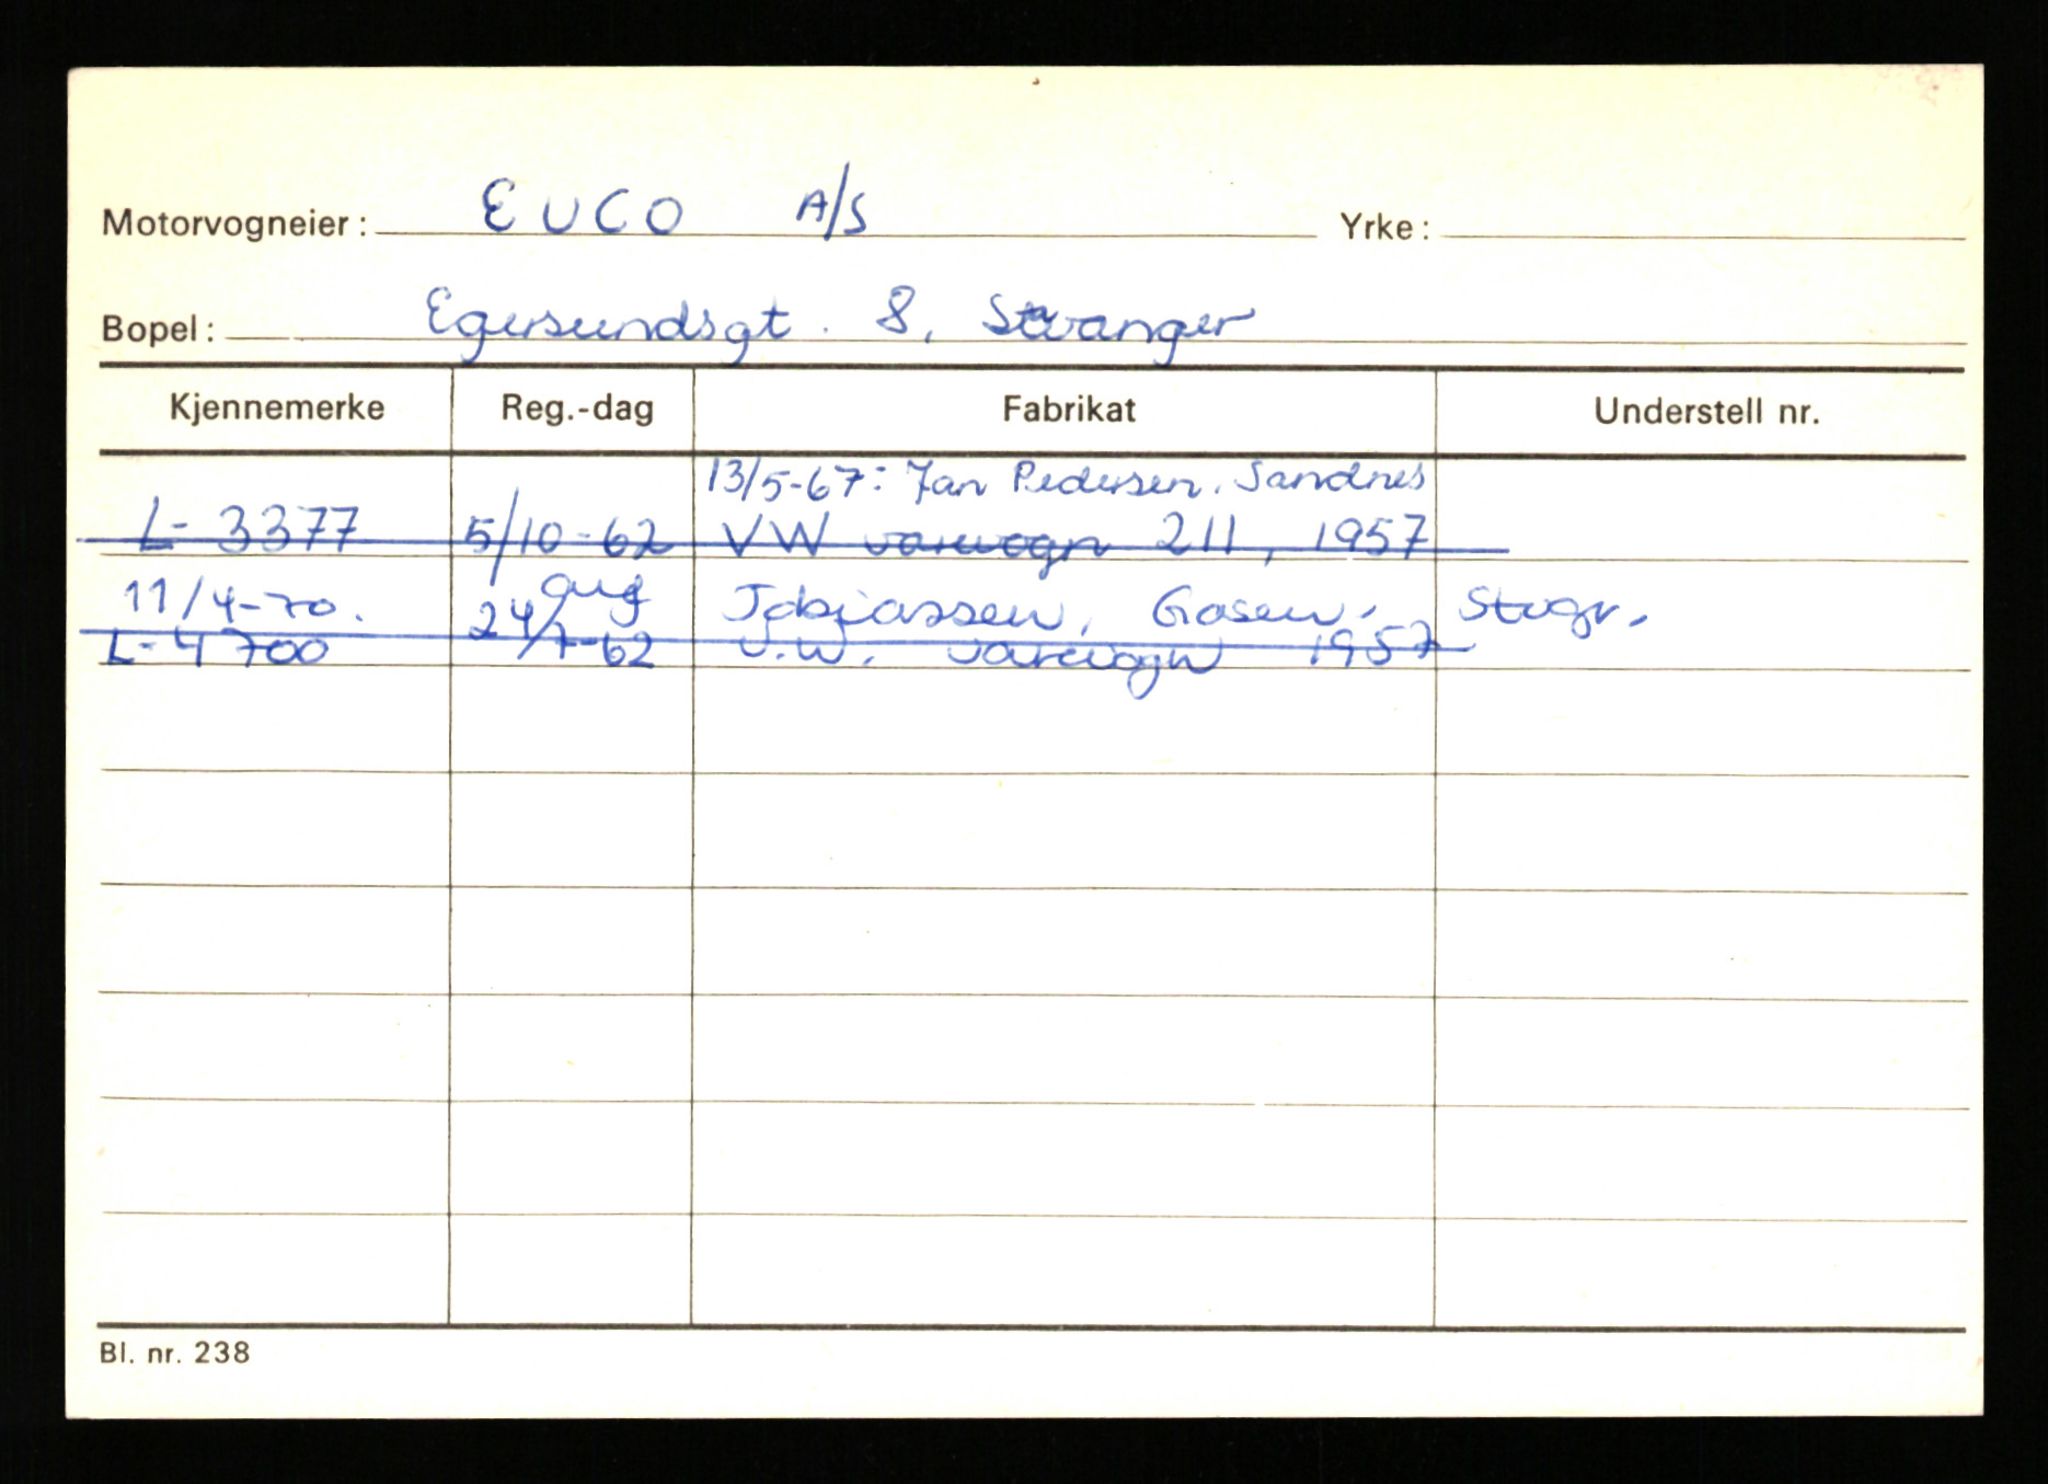 Motorvogneier: EUCO A/S Yrke:
Bopel: Egersundsgt. 8, Stavanger
Kjennemerke Reg.-dag Fabrikat Understell nr.
13/5-67: Jan Pedersen, Sandnes
L- 3377 5/10-62 VW varevogn 211, 1957
11/4-70. aug Tobiassen, Gosen, Stvgr.
L-4700 24/7-62 V.W. varevogn 1957
Bl. nr. 238